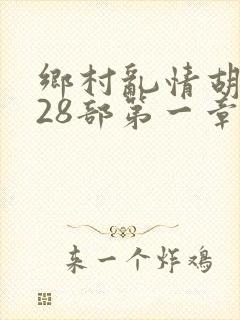 鄉村亂情胡
28部第一章
来一个炸鸡